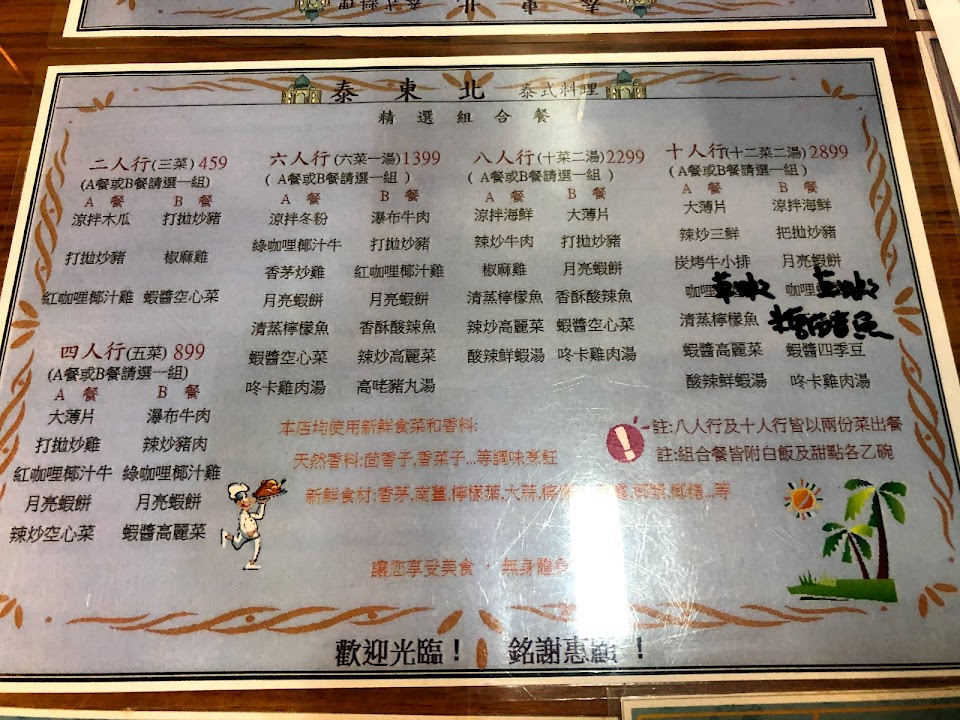 泰東北 泰式料理
泰東北 泰式料理
精選組合餐
二人行(三菜)459
(A餐或B餐請選一組)
A餐 B餐
涼拌木瓜 打拋炒豬
打拋炒豬 椒麻雞
紅咖哩椰汁雞 蝦醬空心菜
四人行(五菜)899
(A餐或B餐請選一組)
A餐 B餐
大薄片 瀑布牛肉
打拋炒雞 辣炒豬肉
紅咖哩椰汁牛 綠咖哩椰汁雞
月亮蝦餅 月亮蝦餅
辣炒空心菜 蝦醬高麗菜
六人行(六菜一湯)1399
(A餐或B餐請選一組)
A餐 B餐
涼拌冬粉 瀑布牛肉
綠咖哩椰汁牛 打拋炒豬
香茅炒雞 紅咖哩椰汁雞
月亮蝦餅 月亮蝦餅
清蒸檸檬魚 香酥酸辣魚
蝦醬空心菜 辣炒高麗菜
咚卡雞肉湯 高咾豬丸湯
八人行(十菜二湯)2299
(A餐或B餐請選一組)
A餐 B餐
涼拌海鮮 大薄片
辣炒牛肉 打拋炒豬
椒麻雞 月亮蝦餅
清蒸檸檬魚 香酥酸辣魚
辣炒高麗菜 蝦醬空心菜
酸辣鮮蝦湯 咚卡雞肉湯
十人行(十二菜二湯)2899
(A餐或B餐請選一組)
A餐 B餐
大薄片 涼拌海鮮
辣炒三鮮 把拋炒豬
炭烤牛小排 月亮蝦餅
咖哩 咖哩
清蒸檸檬魚
蝦醬高麗菜 蝦醬四季豆
酸辣鮮蝦湯 咚卡雞肉湯
本店均使用新鮮食菜和香料:
天然香料:茴香子,香菜子...等調味烹飪
新鮮食材:香茅,南薑,檸檬葉,大蒜,檸 椰漿,椰糖...等
讓您享受美食,無身體
註:八人行及十人行皆以兩份菜出餐
註:組合餐皆附白飯及甜點各乙碗
歡迎光臨! 銘謝惠顧!